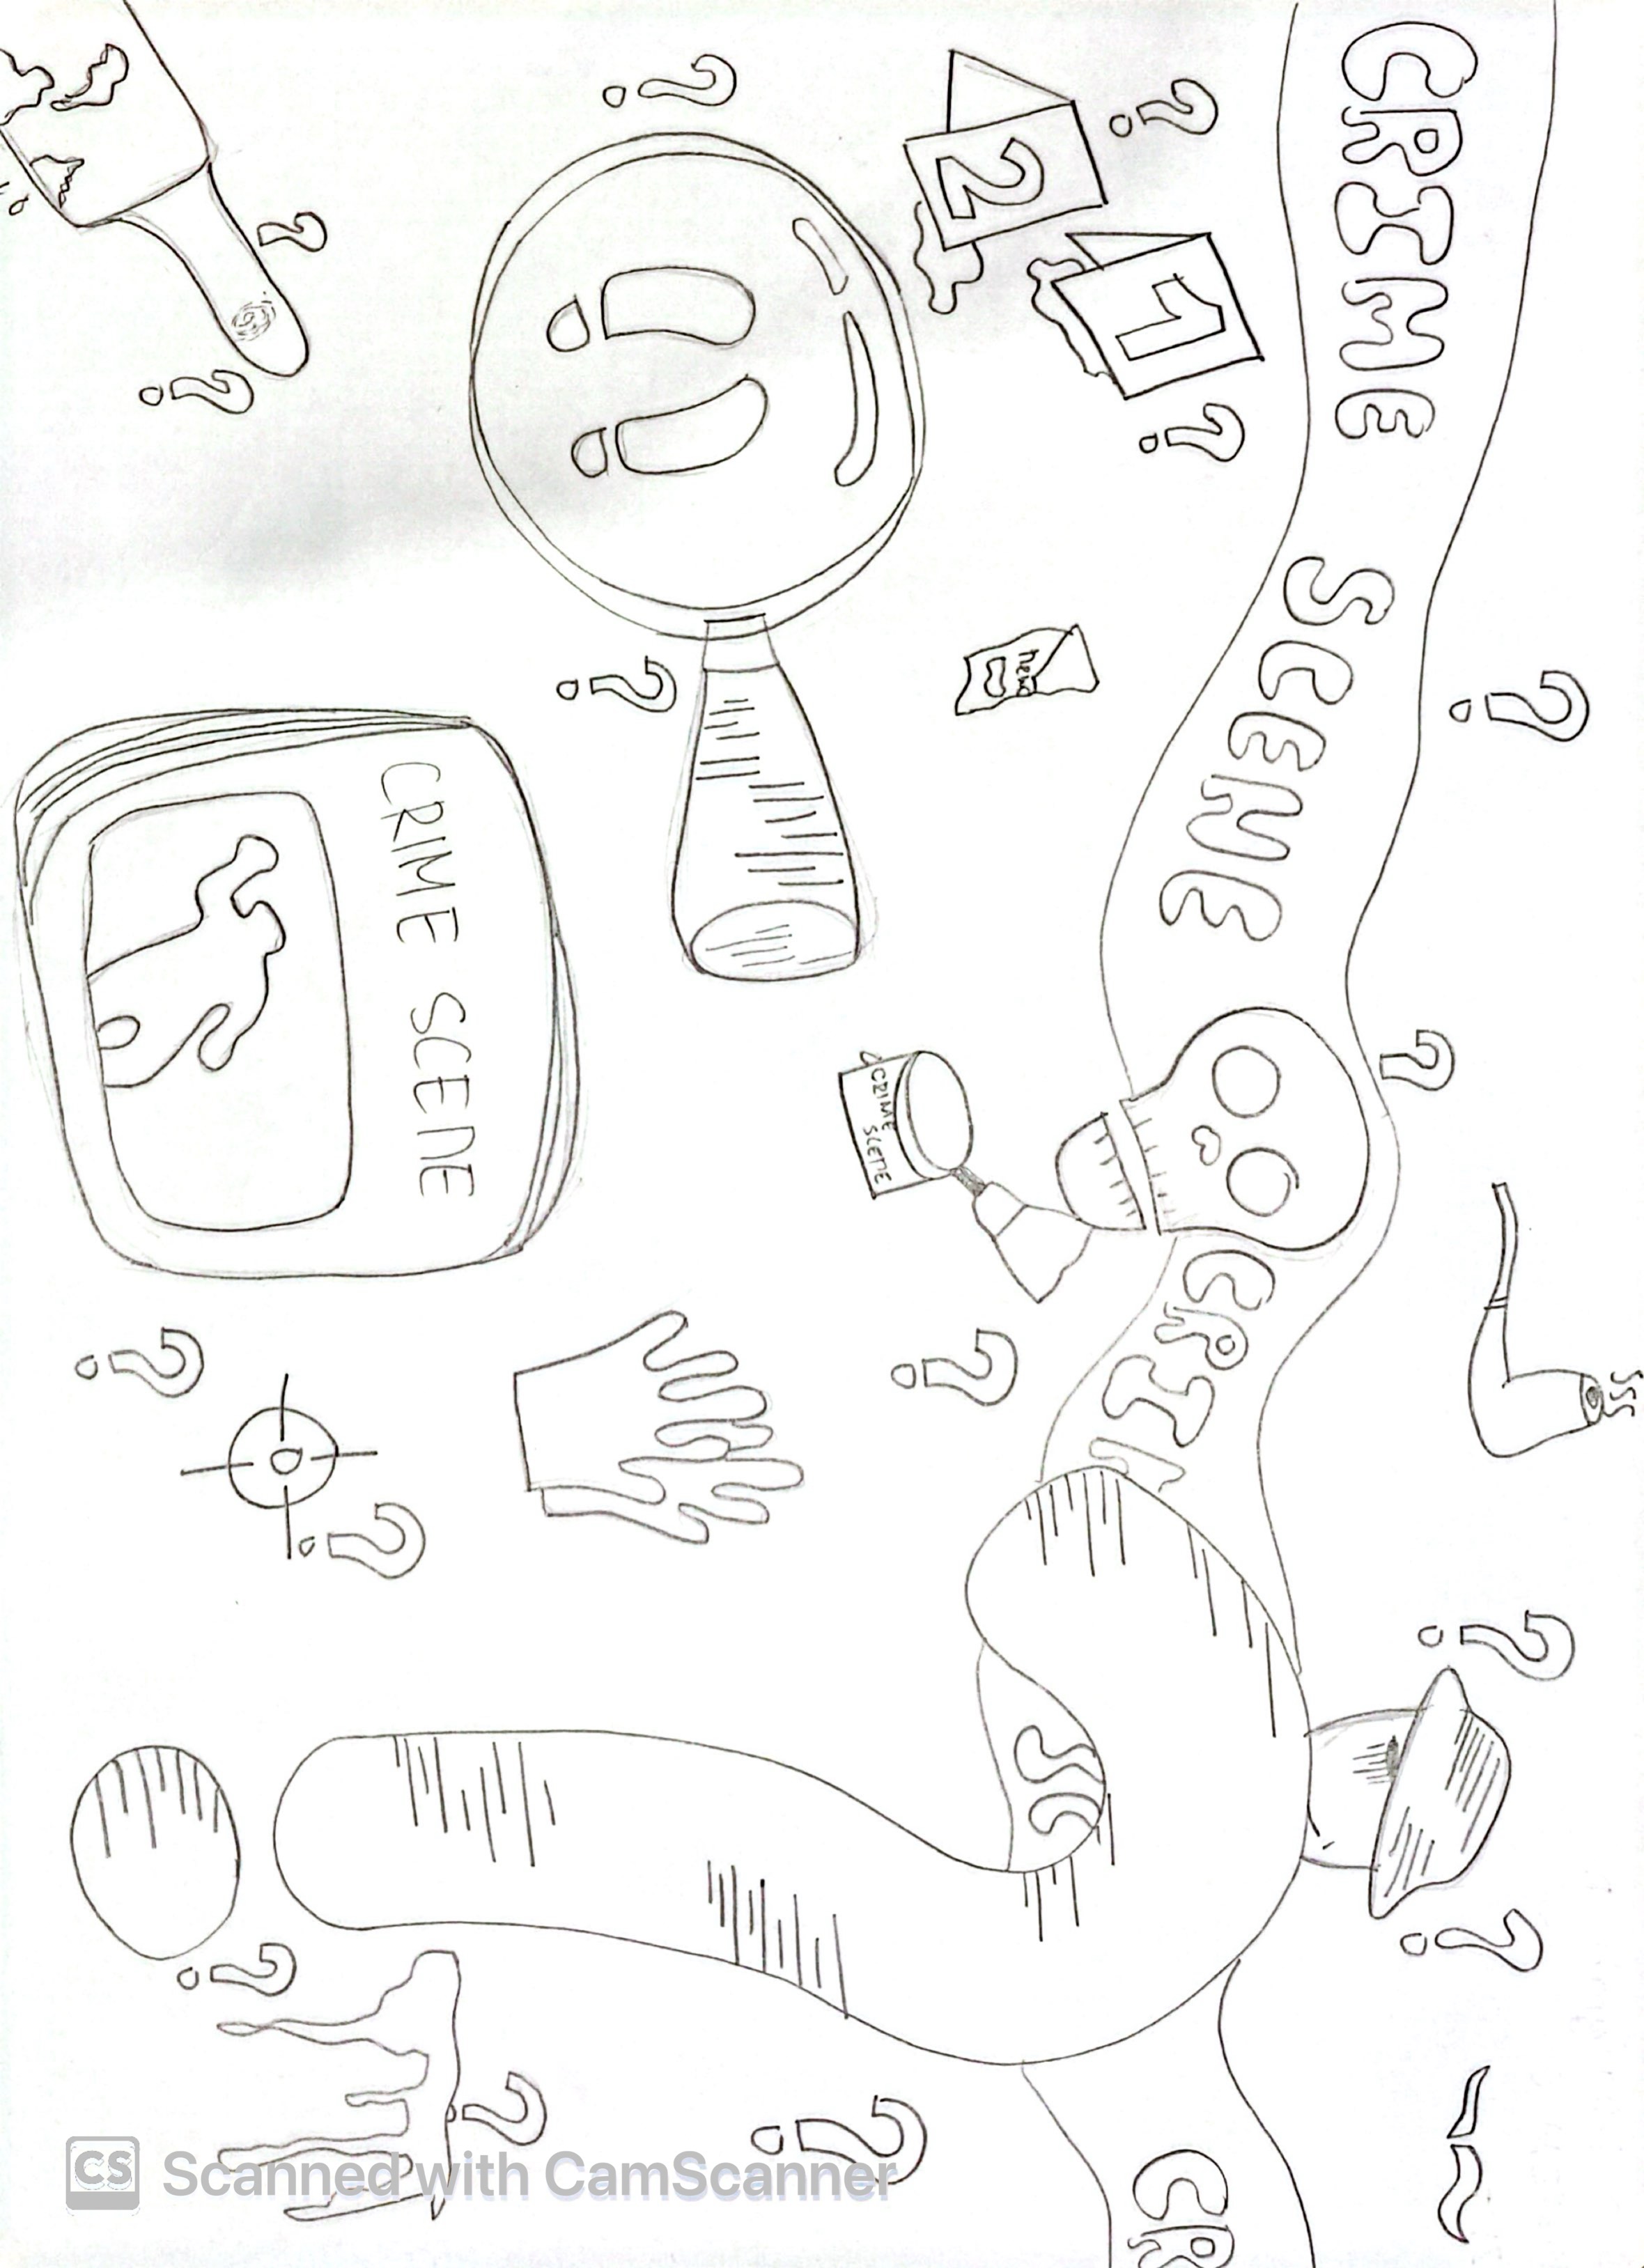 CRIME SCENE CRI
SC
CR
2
1
CRIME SCENE
CRIME SCENE
? ? ? ? ? ? ? ? ? ? ? ? ? ? ? ? ? ?
CS Scanned with CamScanner